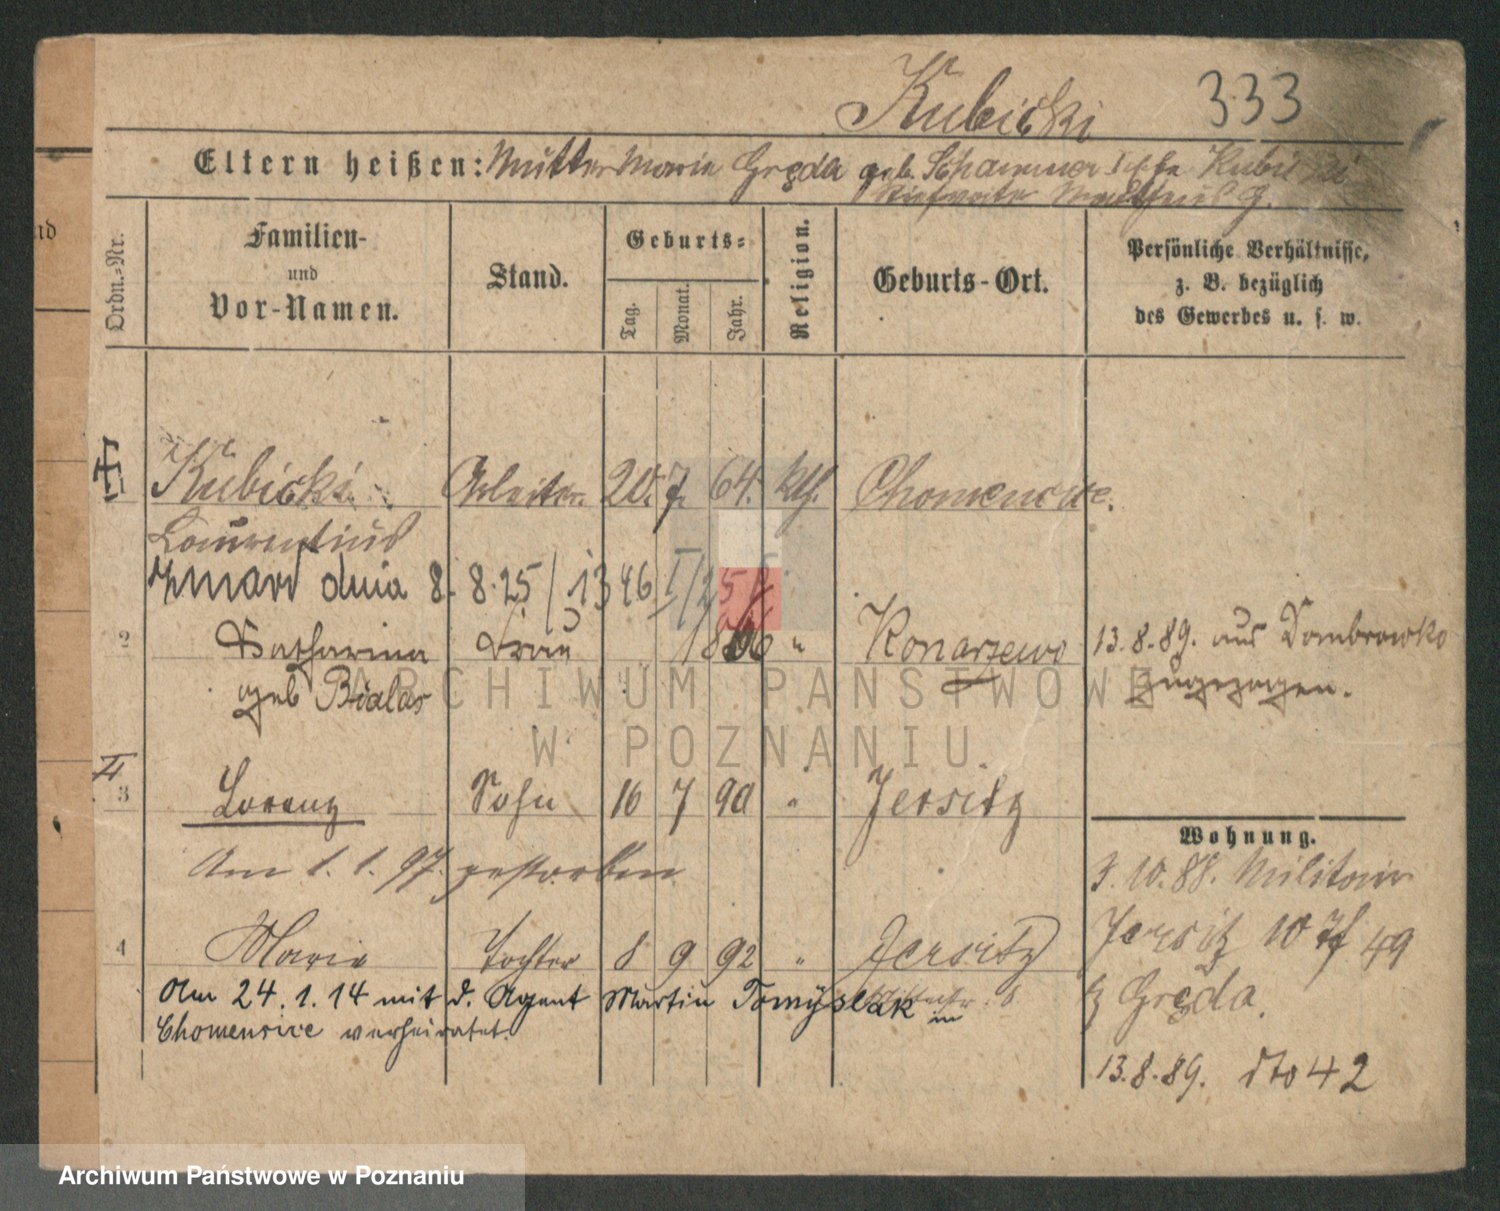 Kubicki 333
Eltern heißen: Mutter Marie Gręda geb.
Stiefvater
nd
Ordn.=Nr.
Familien-
und
Vor-Namen.
Stand.
Geburts=
Tag.
Monat.
Jahr.
Religion.
Geburts-Ort.
Persönliche Verhältnisse,
z. B. bezüglich
des Gewerbes u. s. w.
Kubicki Arbeiter 20. 7. 64. kth. Chomencice.
Laurentius
zmarł dnia 8. 8.25 / 1346
2 Katharina Frau 1866 " Konarzewo 13.8.89. aus Dombrowko
geb Bialas zugezogen.
ARCHIWUM PAŃSTWOWE
W POZNANIU
3 Lorenz Sohn 16 7 90 " Jersitz
Wohnung.
Am 1.1.97. gestorben
3.10.88. Militair
4 Marie Tochter 8 9 92 " Jersitz
Jersitz 49
Am 24.1.14 mit d. Agent Martin Tomyslak in
b Gręda.
Chomencice verheiratet.
13.8.89. dto 42
Archiwum Państwowe w Poznaniu